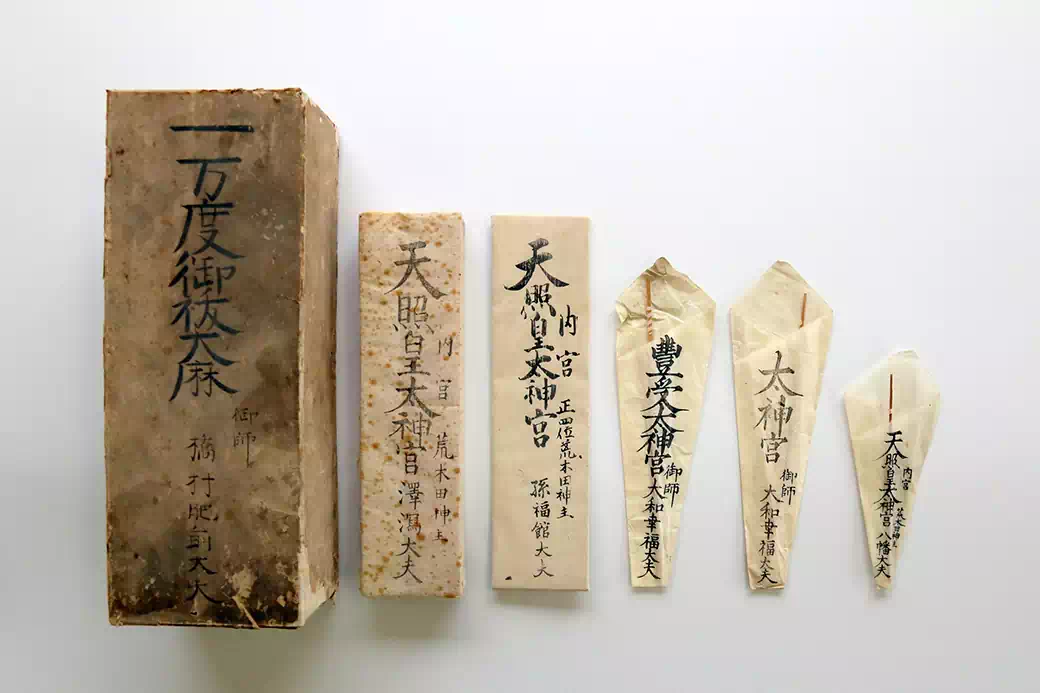 一万度御祓大麻
御師
橋村肥前大夫
内宮 荒木田神主
天照皇太神宮 澤瀉大夫
内宮 正四位荒木田神主
天照皇太神宮 孫福館大夫
豐受太神宮
御師
大和幸福太夫
太神宮
御師
大和幸福太夫
内宮 荒木田神主
天照皇太神宮 八幡太夫